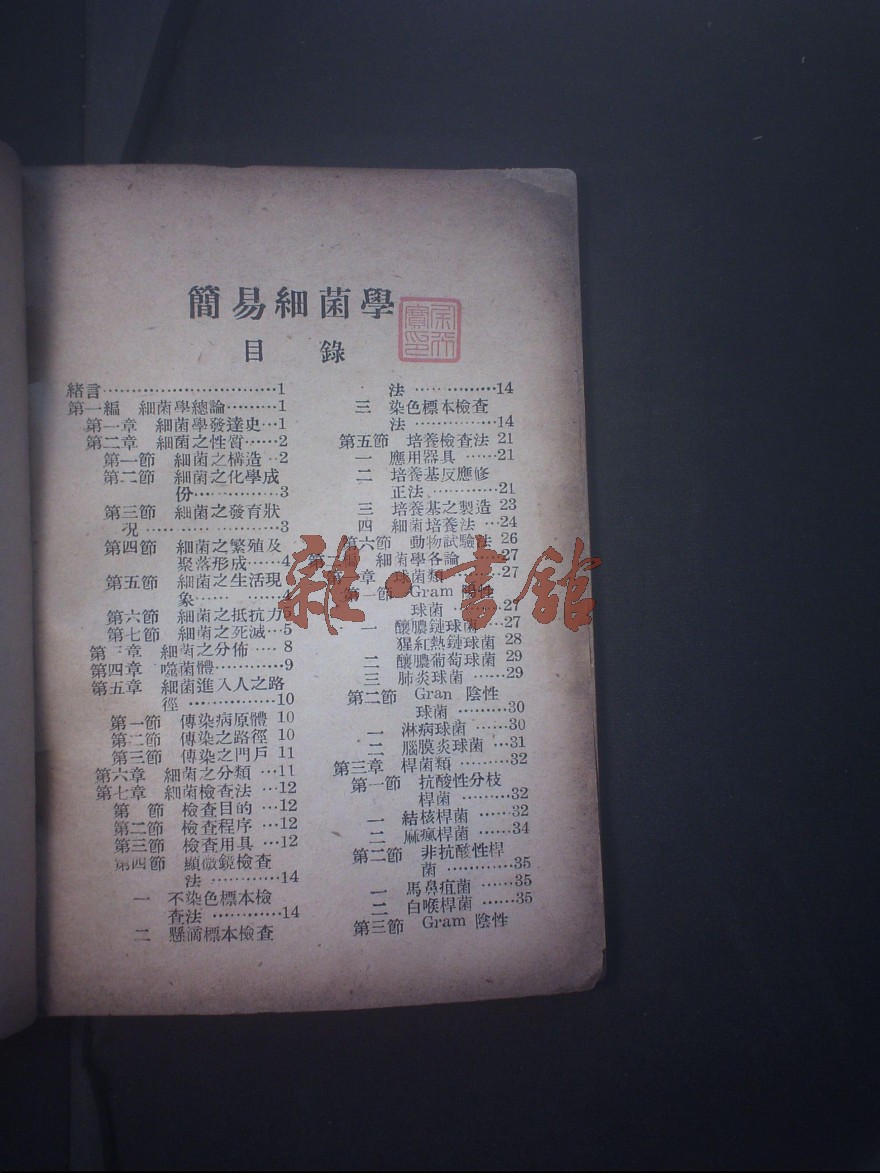 簡易細菌學
目 錄
緒言…………………………1
第一編 細菌學總論………1
第一章 細菌學發達史…1
第二章 細菌之性質……2
第一節 細菌之構造…2
第二節 細菌之化學成
份……………3
第三節 細菌之發育狀
况……………………3
第四節 細菌之繁殖及
聚落形成……4
第五節 細菌之生活現
象…… ……4
第六節 細菌之抵抗力5
第七節 細菌之死滅…5
第三章 細菌之分佈…… 8
第四章 噬菌體…………9
第五章 細菌進入人之路
徑 ……………10
第一節 傳染病原體 10
第二節 傳染之路徑 10
第三節 傳染之門戶 11
第六章 細菌之分類 …11
第七章 細菌檢查法 …12
第 節 檢查目的 …12
第二節 檢查程序 …12
第三節 檢查用具 …12
第四節 顯微鏡檢查
法 …………14
一 不染色標本檢
查法 …………14
二 懸滴標本檢查
法 ……………14
三 染色標本檢查
法 ……………14
第五節 培養檢查法 21
一 應用器具 ……21
二 培養基反應修
正法 …………21
三 培養基之製造 23
四 細菌培養法 …24
第六節 動物試驗法 26
第二編 細菌學各論 ……27
章 球菌類 ………27
第一節 Gram 陽性
球菌 ………27
一 釀膿鏈球菌 …27
猩紅熱鏈球菌 28
二 釀膿葡萄球菌 29
三 肺炎球菌 ……29
第二節 Gran 陰性
球菌 ………30
一 淋病球菌 ……30
二 腦膜炎球菌 …31
第三章 桿菌類 ………32
第一節 抗酸性分枝
桿菌 …………32
一 結核桿菌 ……32
二 麻瘋桿菌 ……34
第二節 非抗酸性桿
菌 …………35
一 馬鼻疽菌 ……35
二 白喉桿菌 ……35
第三節 Gram 陰性
雜·書館